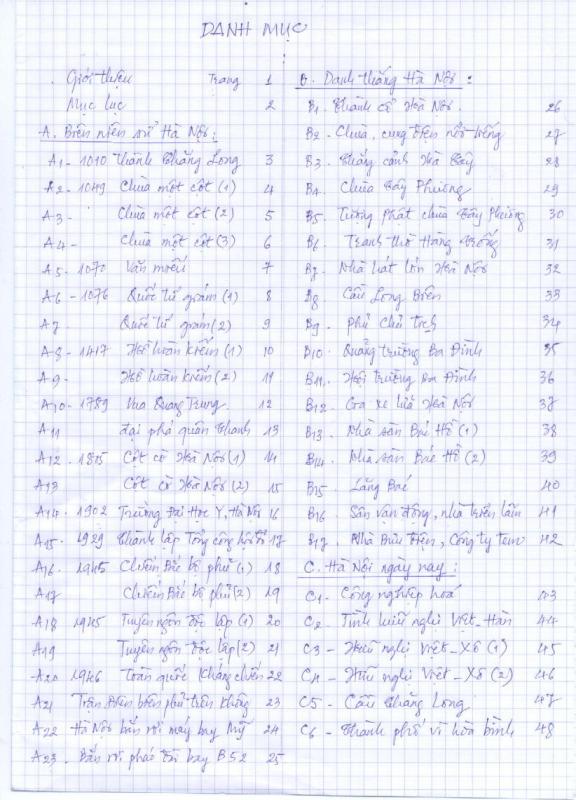 DANH MỤC
Giới thiệu Trang 1
Mục lục 2
A. Biên niên sử Hà Nội:
A1 - 1010 Thành Thăng Long 3
A2 - 1049 Chùa một cột (1) 4
A3 - Chùa một cột (2) 5
A4 - Chùa một cột (3) 6
A5 - 1070 Văn miếu 7
A6 - 1076 Quốc tử giám (1) 8
A7 Quốc tử giám (2) 9
A8 - 1417 Hồ hoàn kiếm (1) 10
A9 - Hồ hoàn kiếm (2) 11
A10 - 1789 Vua Quang Trung 12
A11 Đại phá quân Thanh 13
A12 - 1805 Cột cờ Hà Nội (1) 14
A13 Cột cờ Hà Nội (2) 15
A14 - 1902 Trường Đại Học Y, Hà Nội 16
A15 - 1929 Thành lập Tổng công hội đỏ 17
A16 - 1945 Chiếm Bắc bộ phủ (1) 18
A17 Chiếm Bắc bộ phủ (2) 19
A18 1945 Tuyên ngôn độc lập (1) 20
A19 Tuyên ngôn độc lập (2) 21
A20 1946 Toàn quốc kháng chiến 22
A21 Trận Điện biên phủ trên không 23
A22 Hà Nội bắn rơi máy bay Mỹ 24
A23 - Bắn rơi pháo đài bay B52 25
B. Danh thắng Hà Nội:
B1 - Thành cổ Hà Nội. 26
B2 - Chùa, cung điện nổi tiếng 27
B3 - Thắng cảnh Hà Tây 28
B4 - Chùa Tây Phương 29
B5 - Tượng phật chùa Tây Phương 30
B6 - Tranh thờ Hàng Trống 31
B7 - Nhà hát lớn Hà Nội 32
B8 - Cầu Long Biên 33
B9 - Phủ Chủ tịch 34
B10 - Quảng trường Ba Đình 35
B11 - Hội trường Ba Đình 36
B12 - Ga xe lửa Hà Nội 37
B13 - Nhà sàn Bác Hồ (1) 38
B14 - Nhà sàn Bác Hồ (2) 39
B15 - Lăng Bác 40
B16 - Sân vận động, nhà triển lãm 41
B17 - Nhà Bưu Điện, Công ty tem 42
C. Hà Nội ngày nay:
C1 - Công nghiệp hoá 43
C2 - Tình hữu nghị Việt-Hàn 44
C3 - Hữu nghị Việt-Xô (1) 45
C4 - Hữu nghị Việt-Xô (2) 46
C5 - Cầu Thăng Long 47
C6 - Thành phố vì hoà bình 48